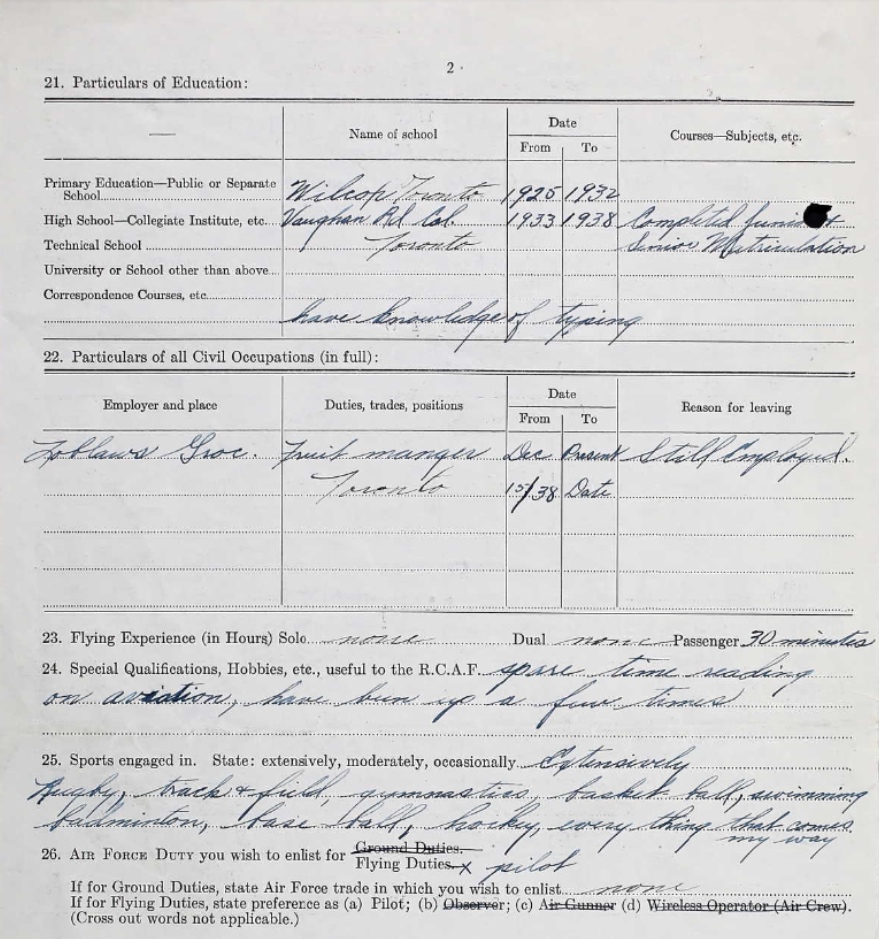 2.
21. Particulars of Education:
Name of school Date Courses—Subjects, etc.
From To
Primary Education—Public or Separate
School Wilcop Toronto 1925 1932
High School—Collegiate Institute, etc. Vaughan Rd Col. 1933 1938 Completed Junior +
Technical School Toronto Senior Matriculation
University or School other than above
Correspondence Courses, etc.
have knowledge of typing
22. Particulars of all Civil Occupations (in full):
Employer and place Duties, trades, positions Date Reason for leaving
From To
Loblaws Groc. Fruit manger Dec Present Still Employed.
Toronto 15/38 Date
23. Flying Experience (in Hours) Solo none Dual none Passenger 30 minutes
24. Special Qualifications, Hobbies, etc., useful to the R.C.A.F. spare time reading
on aviation, have been up a few times
25. Sports engaged in. State: extensively, moderately, occasionally. Extensively
Rugby, track & field gymnastics, basket ball, swimming
badminton, base ball, hockey, every thing that comes
my way
26. AIR FORCE DUTY you wish to enlist for Ground Duties.
Flying Duties. x pilot
If for Ground Duties, state Air Force trade in which you wish to enlist none
If for Flying Duties, state preference as (a) Pilot; (b) Observer; (c) Air Gunner (d) Wireless Operator (Air Crew).
(Cross out words not applicable.)